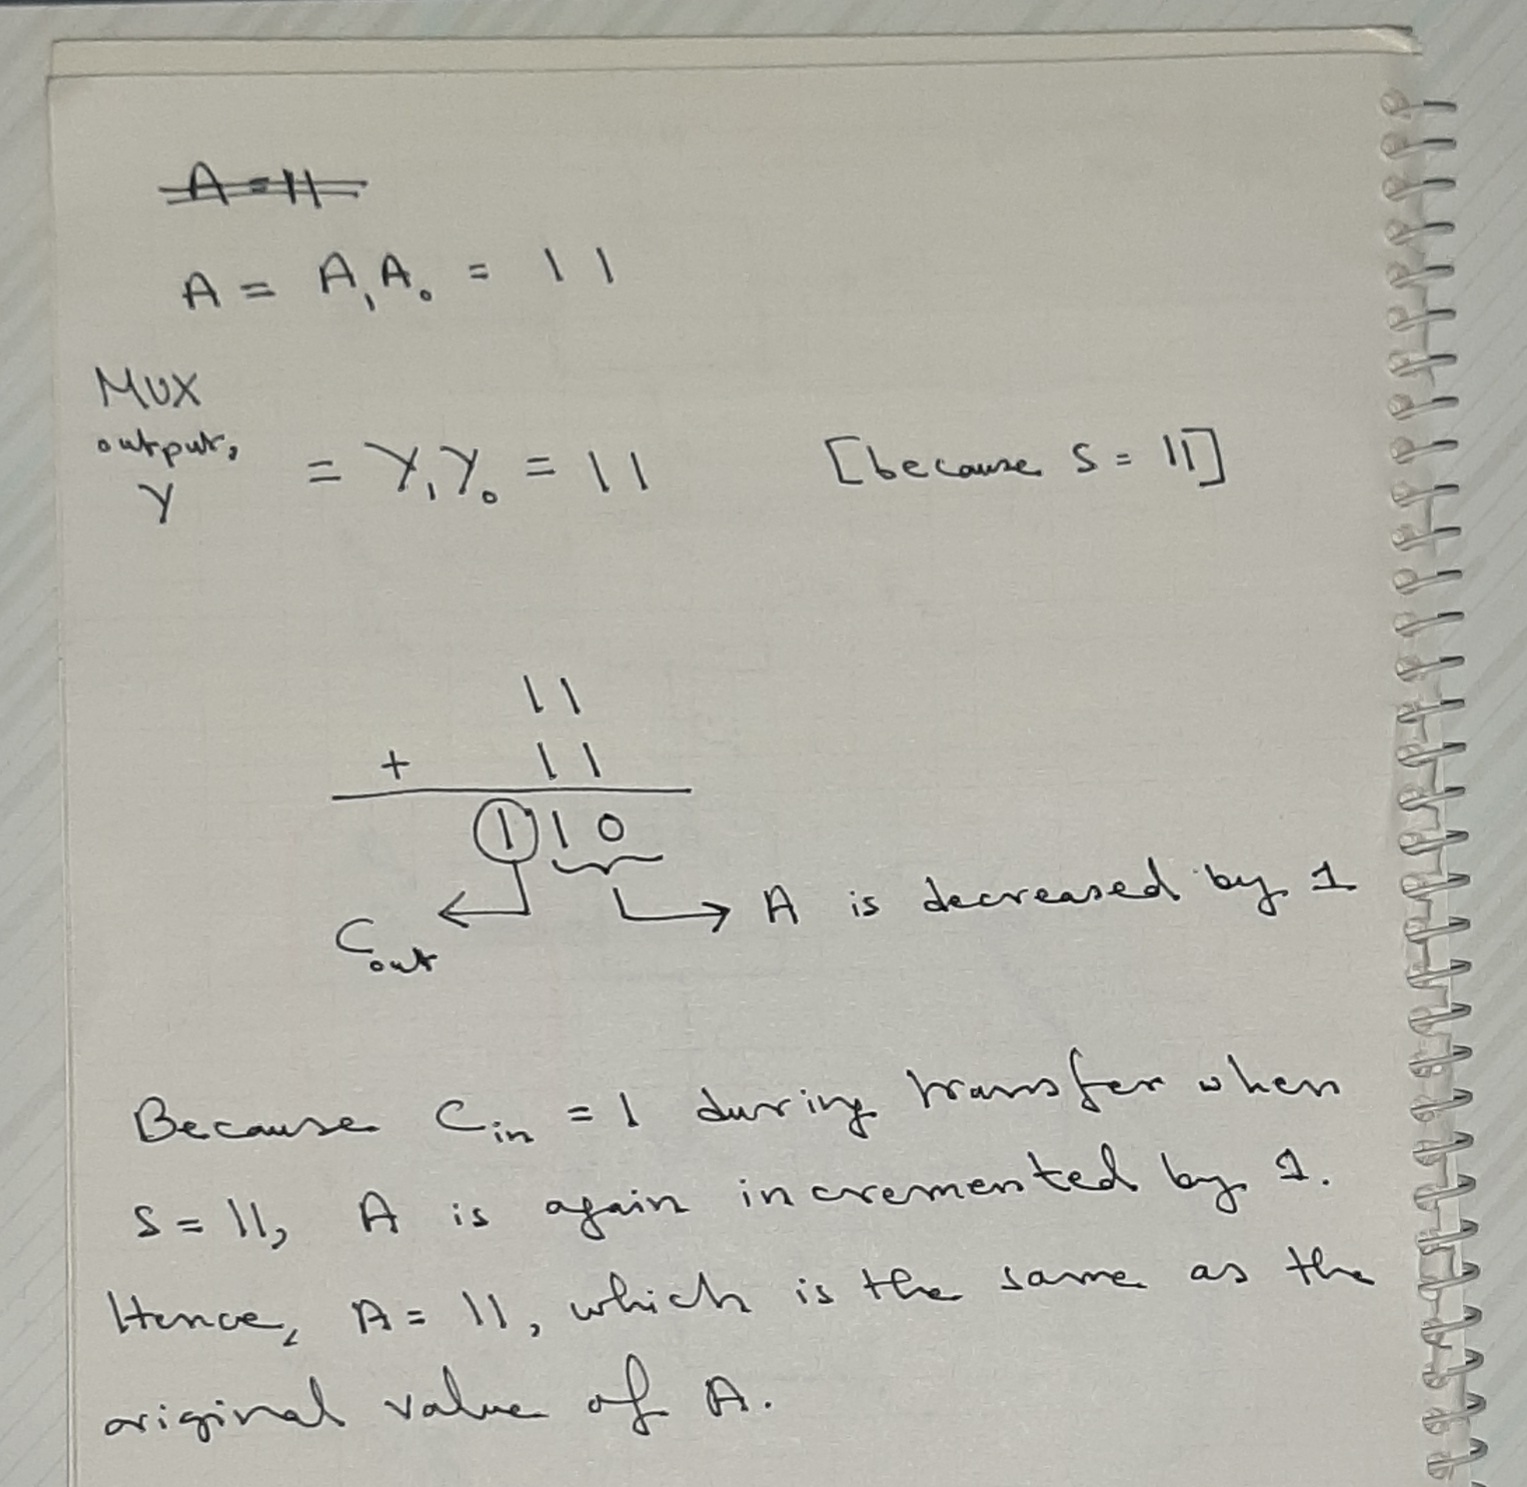 A = 11
A = A₁A₀ = 11
MUX
output,
Y = Y₁Y₀ = 11 [because S = 11]
11
+ 11
110
A is decreased by 1
Cout
Because Cin = 1 during transfer when
S = 11, A is again incremented by 1.
Hence, A = 11, which is the same as the
original value of A.